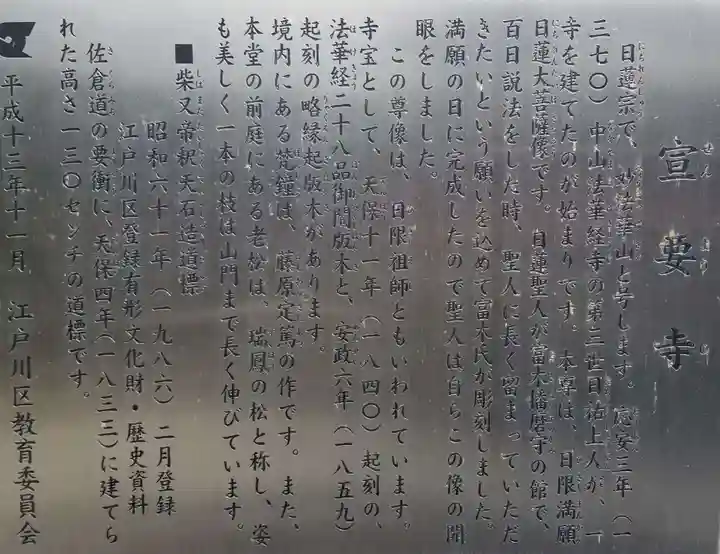 宣要寺
せんようじ
日蓮宗で、妙法華山と号します。応安三年(一
三七〇)中山法華経寺の第三世日祐上人が、一
寺を建てたのが始まりです。本尊は、日限満願
日蓮大菩薩像です。日蓮聖人が富木播磨守の館で、
百日説法をした時、聖人に長く留まっていただ
きたいという願いを込めて富木氏が彫刻しました。
満願の日に完成したので聖人は自らこの像の開
眼をしました。
この尊像は、日限祖師ともいわれています。
寺宝として、天保十一年(一八四〇)起刻の、
法華経二十八品御闇版木と、安政六年(一八五九)
起刻の略縁起版木があります。
境内にある梵鐘は、藤原定篤の作です。また、
本堂の前庭にある老松は、瑞鳳の松と称し、姿
も美しく一本の枝は山門まで長く伸びています。
■柴又帝釈天石造道標
昭和六十一年(一九八六)二月登録
江戸川区登録有形文化財・歴史資料
佐倉道の要衝に、天保四年(一八三三)に建てら
れた高さ一三〇センチの道標です。
平成十三年十一月 江戸川区教育委員会